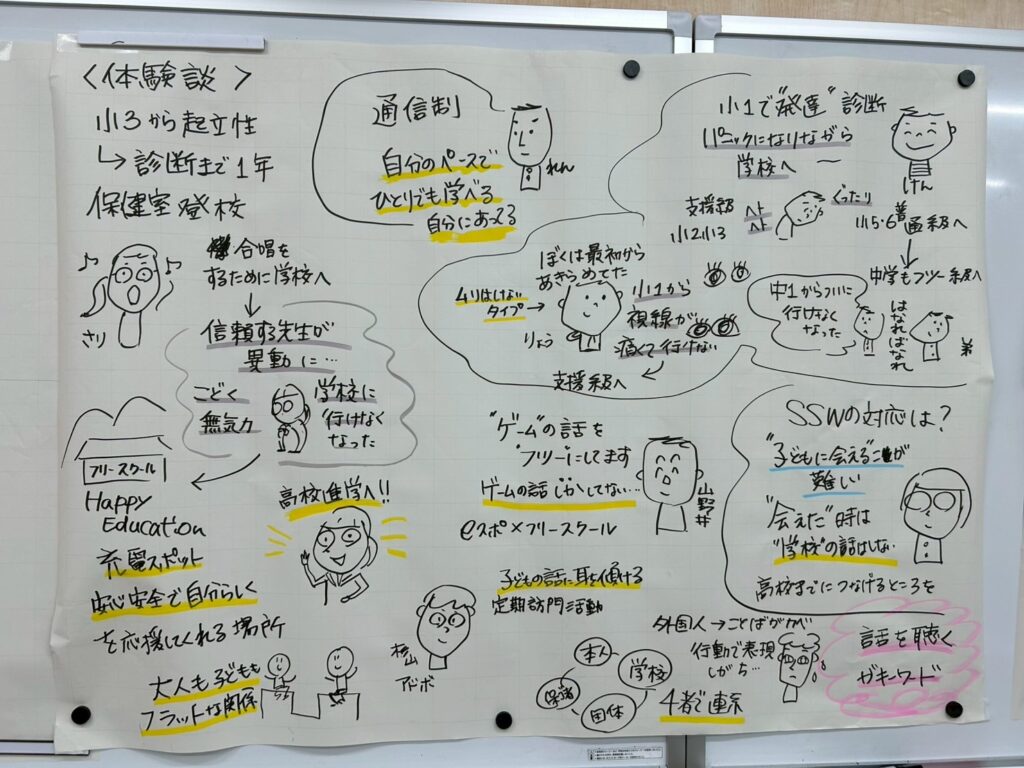 〈体験談〉
小3から起立性
↳診断まで1年
保健室登校
さり
合唱を
するために学校へ
↓
信頼する先生が
異動に…
こどく
無気力
学校に
行けなく
なった
フリースクール
Happy
Education
充電スポット
安心安全で自分らしく
を応援してくれる場所
大人も子どもも
フラットな関係
高校進学へ!!
通信制
自分のペースで
ひとりでも学べる
自分にあってる
れん
小1で"発達"診断
パニックになりながら
学校へ
けん
支援級へ
小2小3
ぐったり
小5・6普通級へ
↓
中学もフツー級へ
中1からついに
行けなく
なった
はなればなれ
弟
ぼくは最初から
あきらめてた
ムリはしない
タイプ→
りょう
小1から
視線が
痛くて行けない
支援級へ
"ゲーム"の話を
"フツー"にしてます
ゲームの話しかしてない…
eスポ×フリースクール
山野井
子どもの話に耳を傾ける
定期訪問活動
アドボ
SSWの対応は?
"子どもに会える"ことが
難しい
"会えた"時は
"学校"の話はしない
高校までにつなげるところを
外国人→ことばがカベ
行動で表現
しがち…
本人
学校
団体
保護
4者で連系
話を聴く
がキーワード